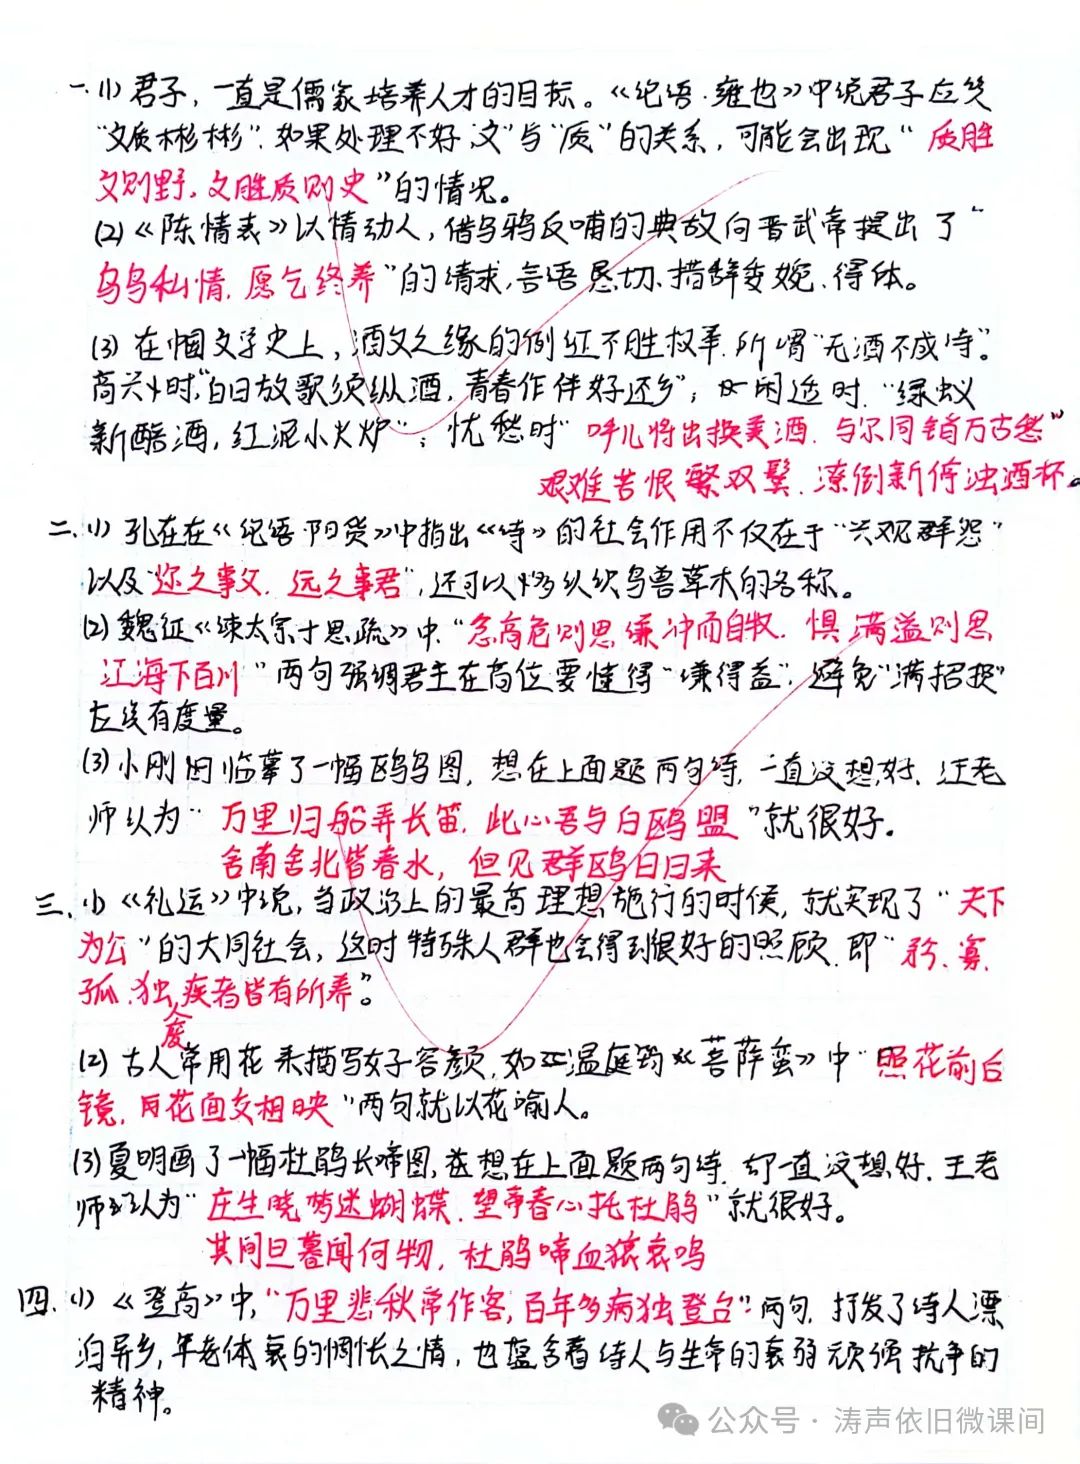 一.(1)君子，一直是儒家培养人才的目标。《论语·雍也》中说君子应笑
“文质彬彬”.如果处理不好“文”与“质”的关系，可能会出现“质胜
文则野，文胜质则史”的情况。
(2)《陈情表》以情动人，借乌鸦反哺的典故向晋武帝提出了“
乌鸟私情，愿乞终养”的请求，言语恳切、措辞委婉、得体。
(3)在中国文学史上，酒文之缘的例红不胜枚举.所谓“无酒不成诗”。
高兴时,“白日放歌须纵酒，青春作伴好还乡”；闲适时“绿蚁
新醅酒，红泥小火炉”；忧愁时“呼儿将出换美酒，与尔同销万古愁”
艰难苦恨繁双鬓，潦倒新停浊酒杯。
二、(1)孔在在《论语·阳货》中指出《诗》的社会作用不仅在于“兴观群怨”
以及“迩之事父，远之事君”，还可以多认识鸟兽草木的名称。
(2)魏征《谏太宗十思疏》中，“念高危则思谦冲而自牧，惧满溢则思
江海下百川”两句强调君主在高位要懂得“谦得益”，避免“满招损”
有度量。
(3)小刚临摹了一幅鸥鸟图，想在上面题两句诗，一直没想好，汪老
师认为“万里归船弄长笛，此心吾与白鸥盟”就很好。
舍南舍北皆春水，但见群鸥日日来
三、(1)《礼运》中说，当政治上的最高理想施行的时候，就实现了“天下
为公”的大同社会，这时特殊人群也会得到很好的照顾，即“矜、寡、
孤、独、废疾者皆有所养”。
人
(2)古人常用花来描写女子容颜，如温庭筠《菩萨蛮》中“照花前后
镜，花面交相映”两句就以花喻人。
(3)夏明画了一幅杜鹃长啼图，并想在上面题两句诗，却一直没想好，王老
师认为“庄生晓梦迷蝴蝶，望帝春心托杜鹃”就很好。
其间旦暮闻何物，杜鹃啼血猿哀鸣
四、(1)《登高》中，“万里悲秋常作客，百年多病独登台”两句，抒发了诗人漂
泊异乡，年老体衰的惆怅之情，也蕴含着诗人与生命的衰弱顽强抗争的
精神。
公众号·涛声依旧微课间